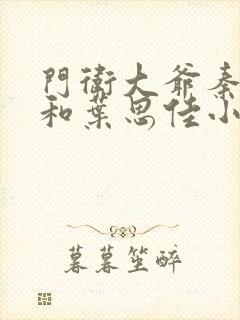 門衛大爺秦
和葉思佳小
暮暮笙醉